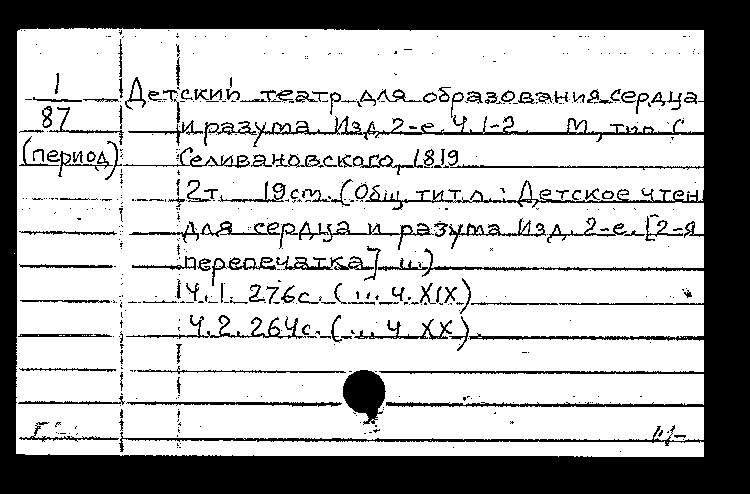 1
87
(период)
Детский театр для образования сердца
и разума. Изд. 2-е. Ч. 1-2 М., тип. С.
Селивановского, 1819
2т. 19см. (Общ. титл.: Детское чтен
для сердца и разума Изд. 2-е. [2-я
перепечатка] ...)
Ч. 1. 276с. (... ч. XIX)
Ч. 2. 264с. (... ч. XX).